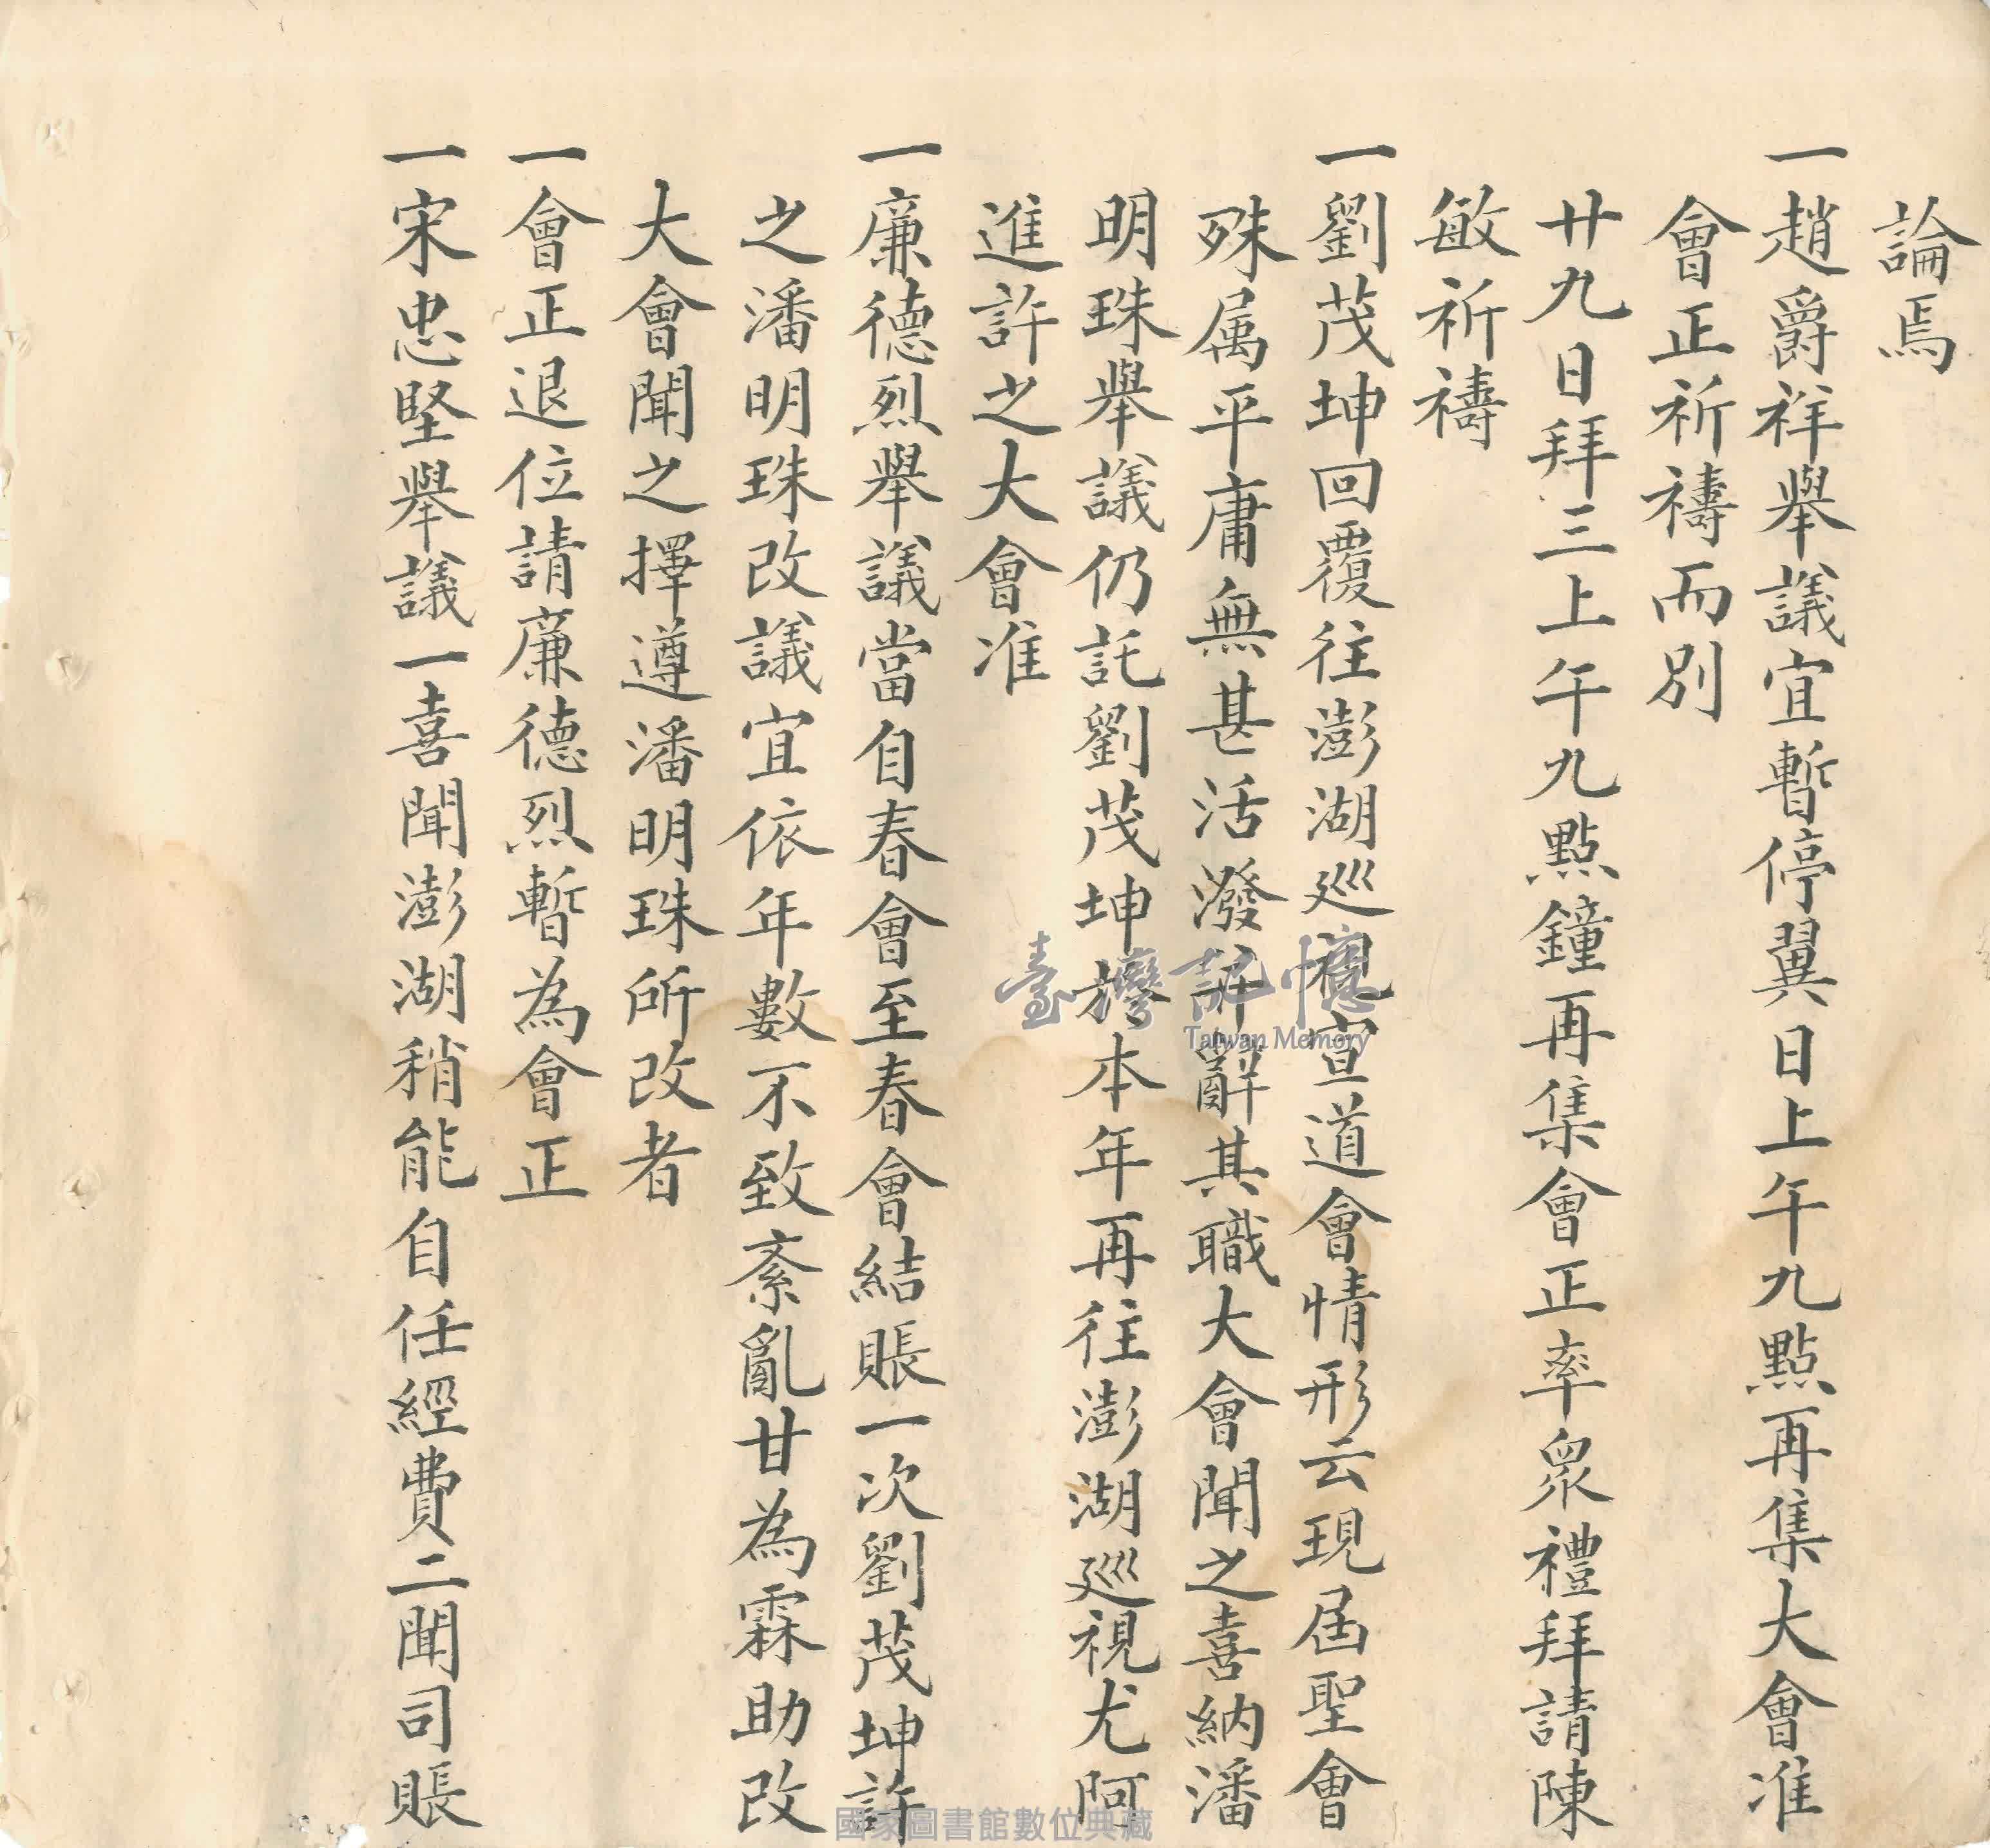 論焉
一趙爵祥舉議宜暫停翼日上午九點再集大會准
會正祈禱而別
廿九日拜三上午九點鐘再集會正率眾禮拜請陳
敏祈禱
一劉茂坤回覆往澎湖巡視宣道會情形云現届聖會
殊属平庸無甚活潑許辭其職大會聞之喜納潘
明珠舉議仍託劉茂坤於本年再往澎湖巡視尤阿
進許之大會准
一廉德烈舉議當自春會至春會結賬一次劉茂坤許
之潘明珠改議宜依年數不致紊亂甘為霖助改
大會聞之擇遵潘明珠所改者
一會正退位請廉德烈暫為會正
一宋忠堅舉議一喜聞澎湖稍能自任經費二聞司賬
臺灣記憶
Taiwan Memory
國家圖書館數位典藏